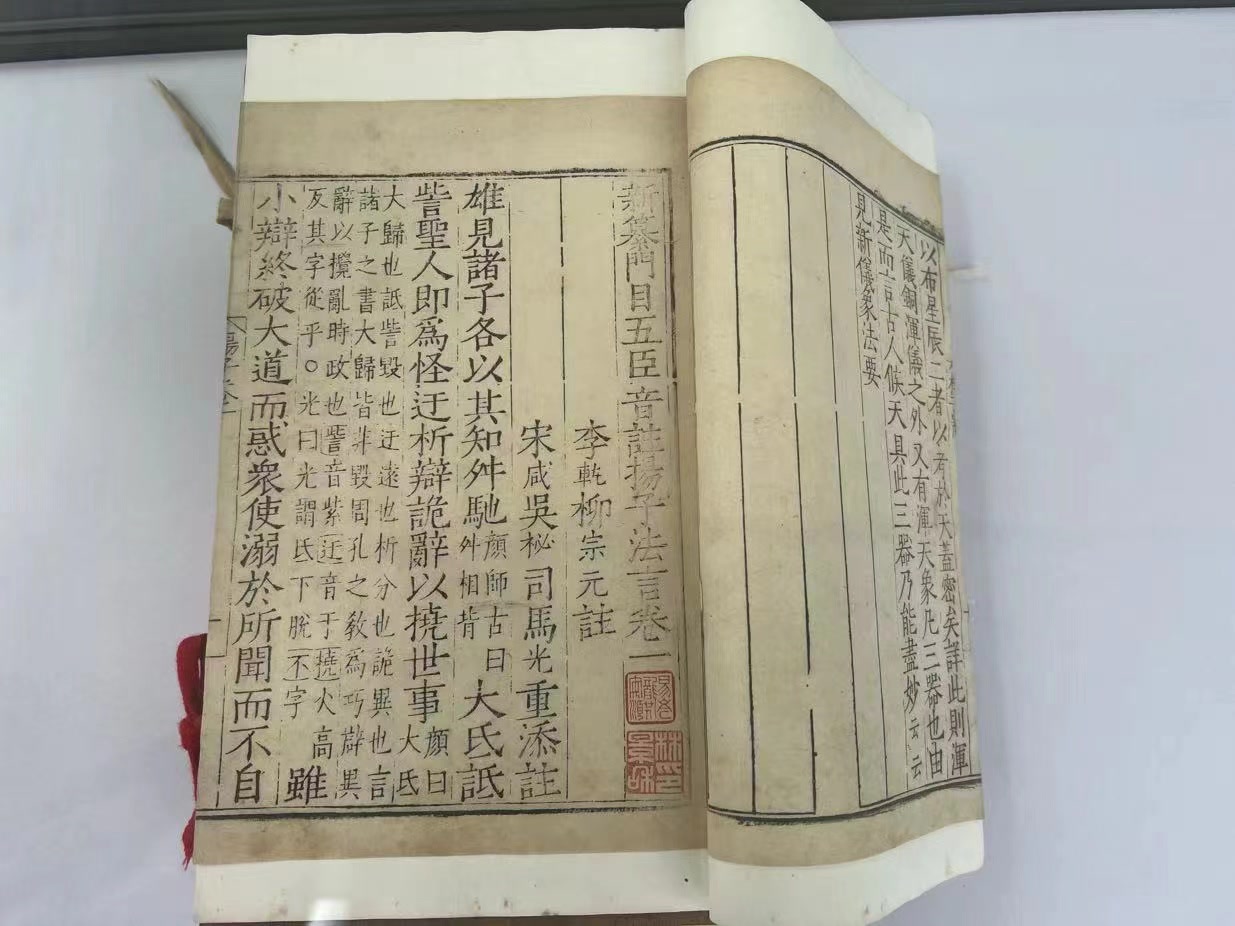 以布星辰二者以考於天蓋密矣詳此則渾
天儀銅渾儀之外又有渾天象凡三器也由
是而言古人候天具此三器乃能盡妙云云
見新儀象法要
新纂門目五臣音註揚子法言卷一
李軓柳宗元註
宋咸吳祕司馬光重添註
雄見諸子各以其知舛馳顏師古曰舛相背大氐詆
訾聖人即爲怪迂析辯詭辭以撓世事顏曰大氐
大歸也詆訾毀也迂遠也析分也詭異也言
諸子之書大歸皆非毀周孔之敎爲巧辟異
辭以攪亂時政也訾音紫迂音于撓火高
反其字從乎○光曰光謂氏下脫不字雖
小辯終破大道而惑衆使溺於所聞而不自